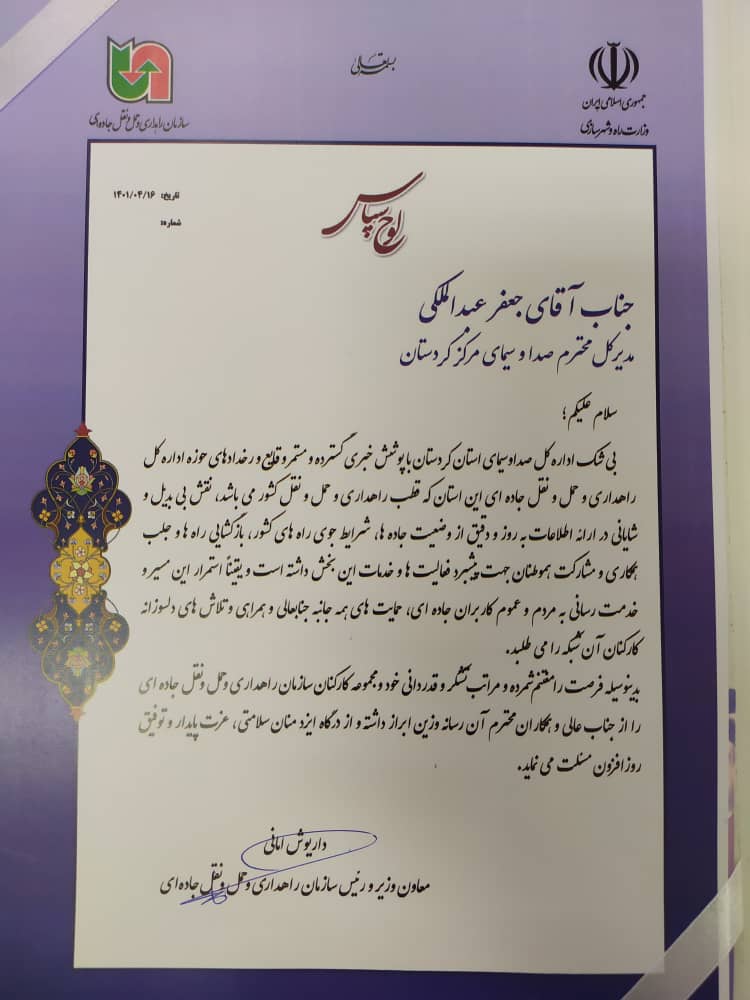 بسمه تعالی
جمهوری اسلامی ایران
وزارت راه و شهرسازی
سازمان راهداری و حمل و نقل جاده ای
تاریخ: ۱۴۰۱/۰۴/۱۶
شماره:
لوح سپاس
جناب آقای جعفر عبدالملکی
مدیرکل محترم صدا و سیمای مرکز کردستان
سلام علیکم؛
بی شک اداره کل صداوسیمای استان کردستان با پوشش خبری گسترده و مستمر وقایع و رخدادهای حوزه اداره کل
راهداری و حمل و نقل جاده ای این استان که قطب راهداری و حمل و نقل کشور می باشد، نقش بی بدیل و
شایانی در ارائه اطلاعات به روز و دقیق از وضعیت جاده ها، شرایط جوی راه های کشور، بازگشایی راه ها و جلب
همکاری و مشارکت هموطنان جهت پیشبرد فعالیت ها و خدمات این بخش داشته است و یقیناً استمرار این مسیر و
خدمت رسانی به مردم و عموم کاربران جاده ای، حمایت های همه جانبه جنابعالی و همراهی و تلاش های دلسوزانه
کارکنان آن شبکه را می طلبد.
بدینوسیله فرصت را مغتنم شمرده و مراتب تشکر و قدردانی خود و مجموعه کارکنان سازمان راهداری و حمل و نقل جاده ای
را از جناب عالی و همکاران محترم آن رسانه وزین ابراز داشته و از درگاه ایزد منان سلامتی، عزت پایدار و توفیق
روزافزون مسئلت می نماید.
داریوش امانی
معاون وزیر و رئیس سازمان راهداری و حمل و نقل جاده ای